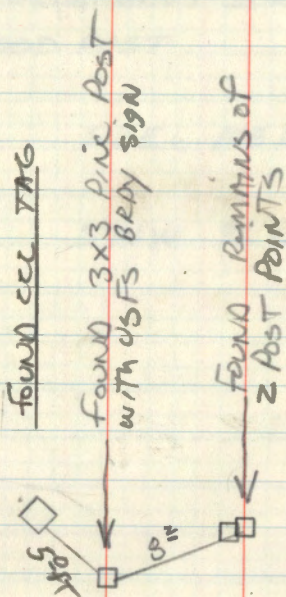 FOUND CCC TAG
FOUND 3x3 PINE POST
WITH USFS BRDY SIGN
8"
FOUND REMAINS OF
2 POST POINTS